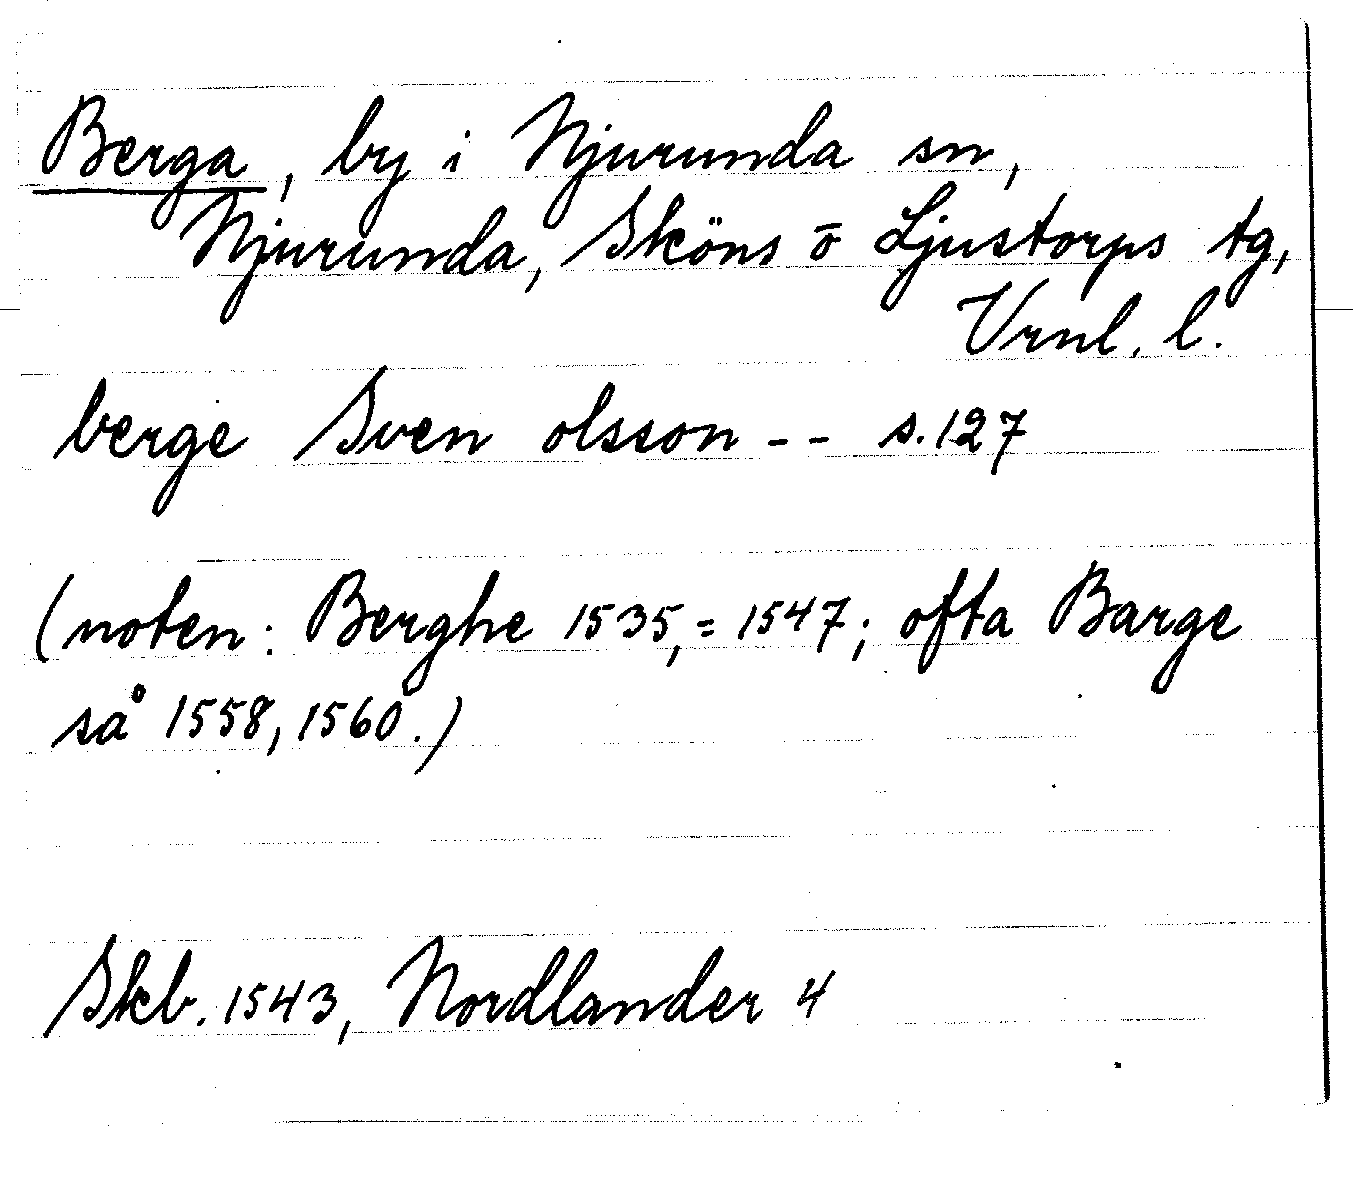 Berga, by i Njurunda sn,
Njurunda, Sköns ō Ljustorps tg,
Vrnl. l.
berge Sven olsson -- s.127
(noten: Berghe 1535,= 1547; ofta Barge
så 1558, 1560.)
Skb. 1543, Nordlander 4